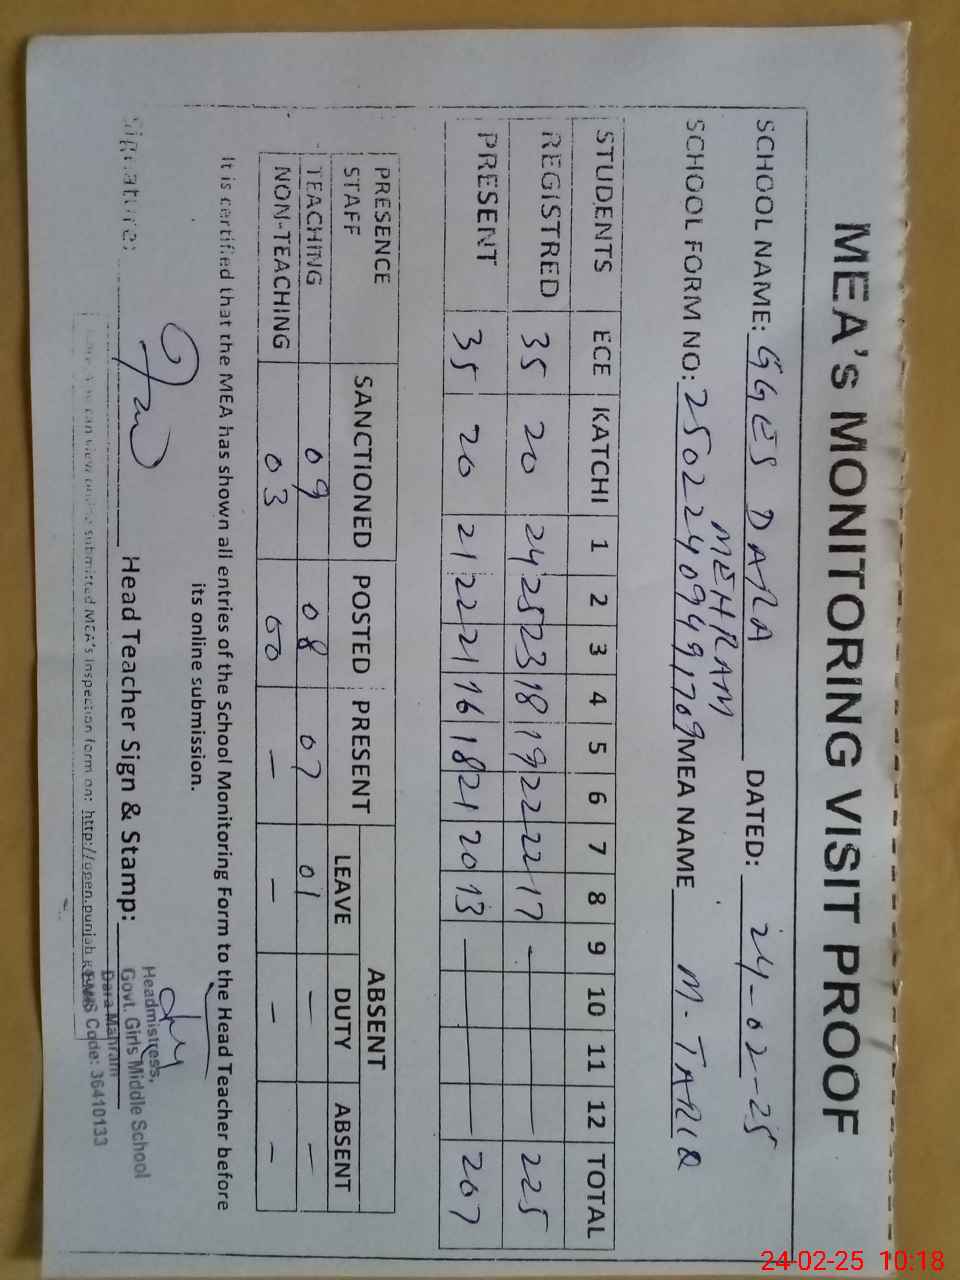 MEA's MONITORING VISIT PROOF
SCHOOL NAME: GGES DARA DATED: 24-02-25
MEHRAM
SCHOOL FORM NO: 25022409491709 MEA NAME M-TARIQ
STUDENTS ECE KATCHI 1 2 3 4 5 6 7 8 9 10 11 12 TOTAL
REGISTRED 35 20 24 25 23 18 19 22 22 17 — 225
PRESENT 35 20 21 22 21 16 18 21 20 13 — 207
PRESENCE STAFF SANCTIONED POSTED PRESENT ABSENT
LEAVE DUTY ABSENT
TEACHING 09 08 07 01 — —
NON-TEACHING 03 00 — — — —
It is certified that the MEA has shown all entries of the School Monitoring Form to the Head Teacher before
its online submission.
Signature: Head Teacher Sign & Stamp:
Headmistress,
Govt. Girls Middle School
Dara Mahram
EMIS Code: 36410133
you can view online submitted MEA's Inspection form on: http://open.punjab
24-02-25 10:18